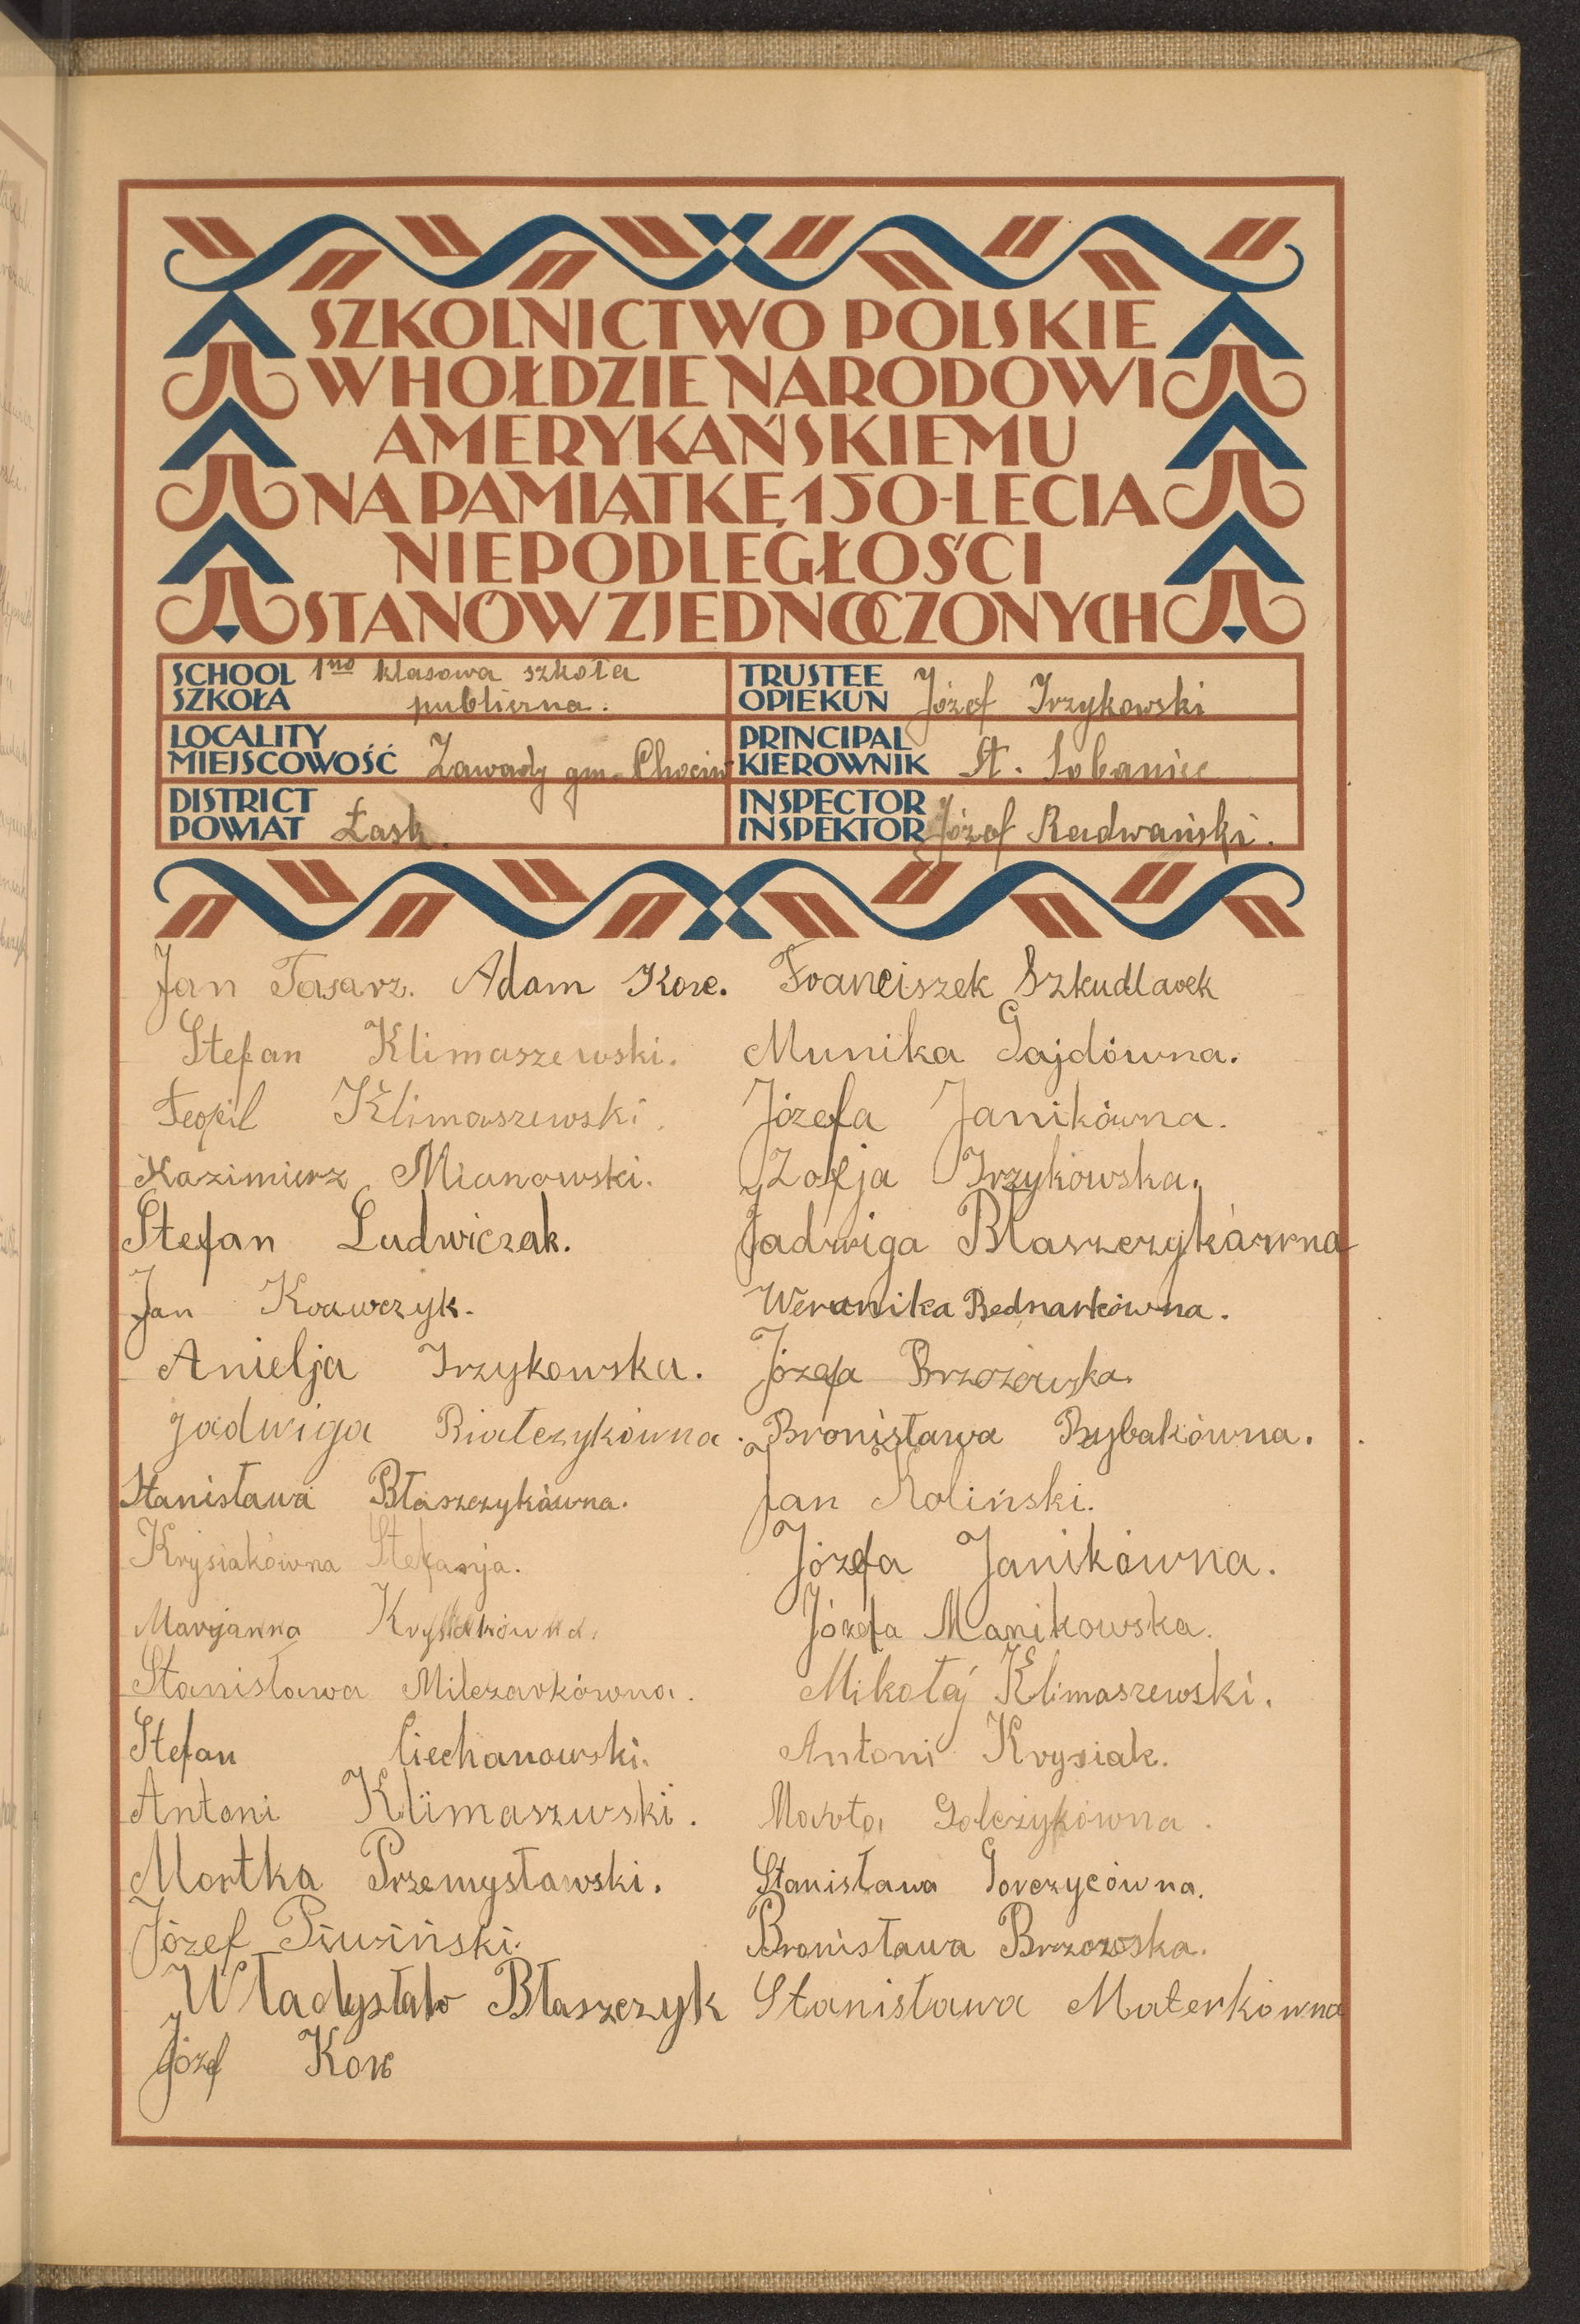 SZKOLNICTWO POLSKIE
W HOŁDZIE NARODOWI
AMERYKAŃSKIEMU
NA PAMIĄTKĘ 150-LECIA
NIEPODLEGŁOŚCI
STANÓW ZJEDNOCZONYCH
SCHOOL
SZKOŁA
1no klasowa szkoła
publiczna.
TRUSTEE
OPIEKUN
Józef Irzykowski
LOCALITY
MIEJSCOWOŚĆ
Zawady gm. Chociw
PRINCIPAL
KIEROWNIK
St. Sobaniec
DISTRICT
POWIAT
Łask.
INSPECTOR
INSPEKTOR
Józef Radwański.
Jan Tasarz. Adam Korc. Franciszek Szkudlarek
Stefan Klimaszewski.
Teofil Klimaszewski.
Kazimierz Mianowski.
Stefan Ludwiczak.
Jan Krawczyk.
Anielja Irzykowska.
Jadwiga Białczykówna.
Stanisława Błaszczykówna.
Krysiakówna Stefanja.
Marjanna Krysiakówna.
Stanisława Milczarkówna.
Stefan Ciechanowski.
Antoni Klimaszwski.
Mortka Przemysławski.
Józef Piwiński.
Władysław Błaszczyk
Józef Korc
Munika Gajdówna.
Józefa Janikówna.
Zofja Irzykowska.
Jadwiga Błaszczykówna
Weronika Bednarkówna.
Józefa Brzozowska.
Bronisława Rybakówna.
Jan Roliński.
Józefa Janikówna.
Józefa Manikowska.
Mikołaj Klimaszewski.
Antoni Krysiak.
Marta Golczykówna.
Stanisława Gorczycówna.
Bronisława Brzozoska.
Stanisława Materkówna